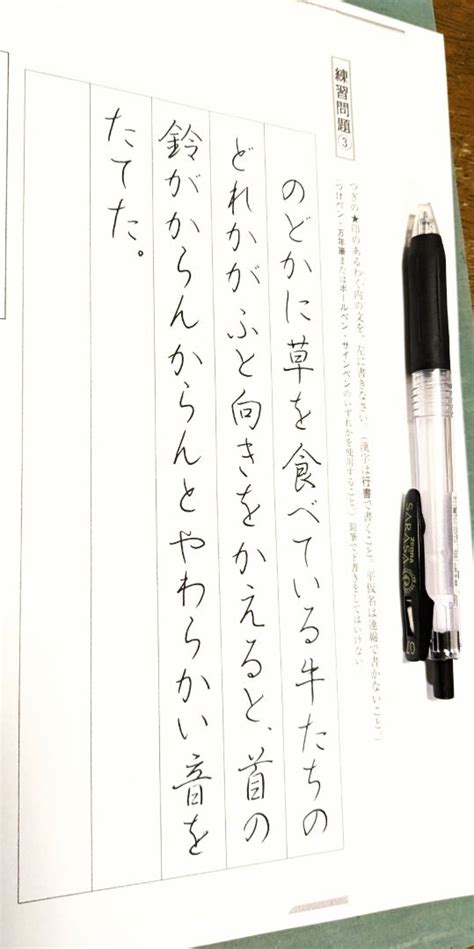 練習問題③
つぎの★印のあるわく内の文を、左に書きなさい。(漢字は行書で書くこと。平仮名は連綿で書かないこと。)
(つけペン・万年筆またはボールペン・サインペンのいずれかを使用すること。)鉛筆で下書きをしてはいけない
のどかに草を食べている牛たちの
どれかがふと向きをかえると、首の
鈴がからんからんとやわらかい音を
たてた。
ZEBRA
SARASA